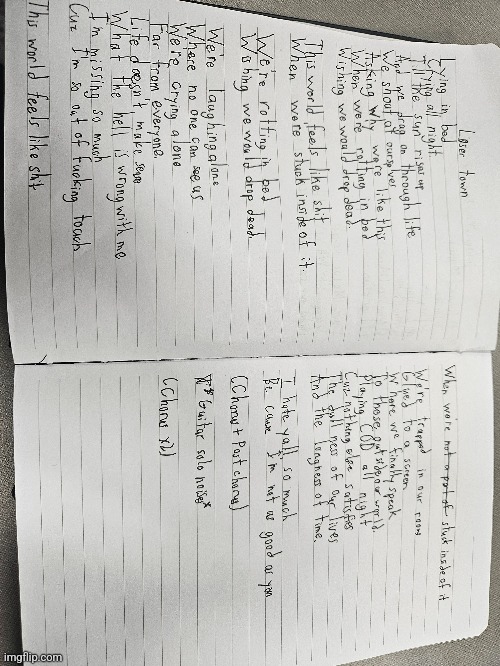 Loser town
Lying in bed
Crying all night
Till the sun rises up
And we drag on through life
We shout at ourselves
Asking why we're like this
When we're rotting in bed
Wishing we would drop dead.
This world feels like shit
When we're stuck inside of it.
We're rotting in bed
Wishing we would drop dead
We're laughing alone
Where no one can see us
We're crying alone
Far from everyone
Life doesn't make sense
What the hell is wrong with me
I'm missing so much
Cuz I'm so out of fucking touch
This world feels like shit
When we're not a part of stuck inside of it
We're trapped in our rooms
Glued to a screen
Where we finally speak
To those outside our world.
Playing COD all night
Cuz nothing else satisfies
The dullness of our lives
And the longness of time.
I hate yall so much
Because I'm not as good as you
(Chorus + Post chorus)
*Guitar solo noises*
(Chorus x2)
imgflip.com